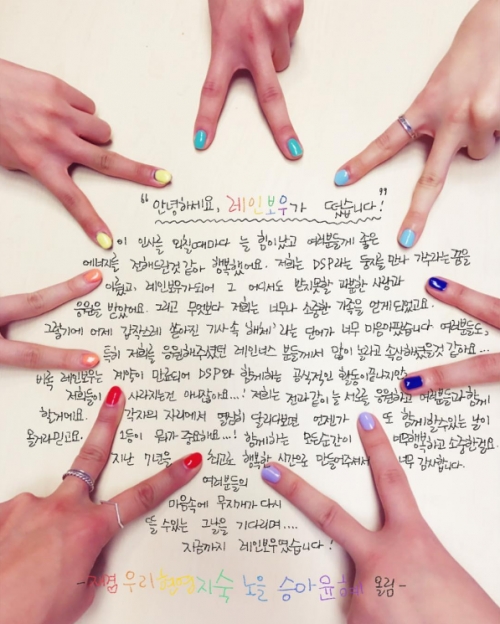 “안녕하세요, 레인보우가 떴습니다!”
이 인사를 외칠때마다 늘 힘이났고 여러분들께 좋은
에너지를 전해드린것 같아 행복했어요. 저희는 DSP라는 둥지를 만나 가수라는꿈을
이뤘고, 레인보우가되어 그 어디서도 받지못할 과분한 사랑과
응원을 받았어요. 그리고 무엇보다 저희는 너무나 소중한 가족을 얻게되었고요.
그렇기에 어제 갑작스레 쏟아진 기사 속 '해체'라는 단어가 너무 마음아팠습니다 여러분들도,
특히 저희를 응원해주셨던 레인너스 분들께서 많이 놀라고 속상하셨을것 같아요...
비록 레인보우는 계약이 만료되어 DSP와 함께하는 공식적인 활동이 끝나지만
저희들이 사라지는건 아니잖아요...! 저희는 전과같이 늘 서로를 응원하고 여러분들과 함께
할거에요. 각자의 자리에서 열심히 달리다보면 언젠가 또 함께할수있는 날이
올거라믿고요. 1등이 뭐가 중요하요...! 함께하는 모든순간이 따뜻했고 소중한걸요.
지난 7년을 최고로 행복한 시간으로 만들어주셔서 너무 감사합니다.
여러분들의
마음속에 무지개가 다시
뜰 수있는 그날을 기다리며....
지금까지 레인보우였습니다!
-재경 우리 현영 지숙 노을 승아 윤혜 올림-